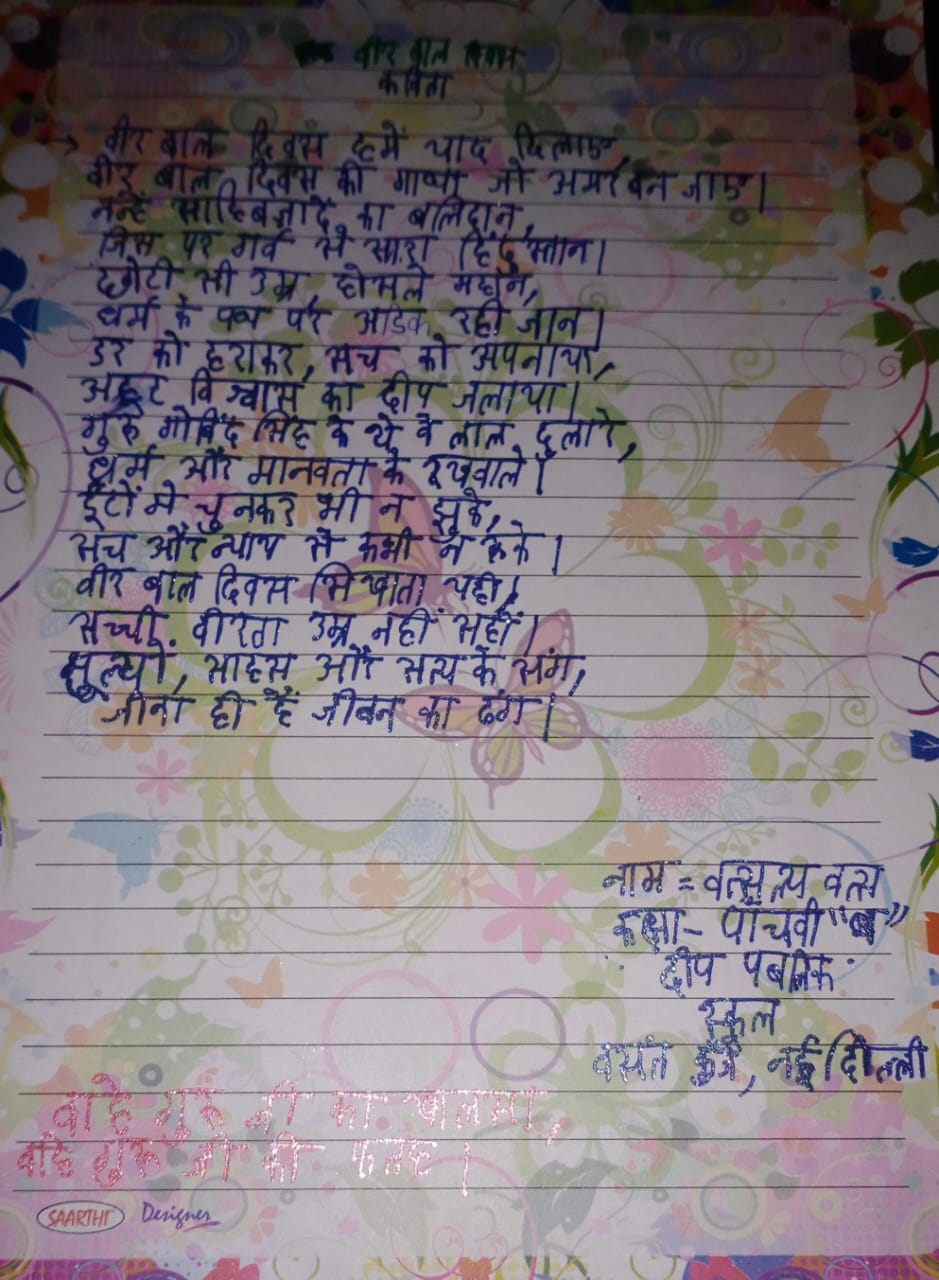 वीर बाल दिवस
कविता
→ वीर बाल दिवस हमें याद दिलाए,
वीर बाल दिवस की गाथा जो अमर बन जाए।
नन्हे साहिबजादे का बलिदान,
जिस पर गर्व से सारा हिंदुस्तान।
छोटी सी उम्र, होसले महान,
धर्म के पथ पर अडिक रही जान।
डर को हराकर, सच को अपनाया,
अटूट विश्वास का दीप जलाया।
गुरु गोबिंद सिंह के थे वे लाल दुलारे,
धर्म और मानवता के रखवाले।
ईंटों मे चुनकर भी न झुके,
सच और न्याय से कभी न रुके।
वीर बाल दिवस सिखाता यही,
सच्ची वीरता उम्र नहीं सही।
मूल्यों, साहस और सत्य के संग,
जीना ही है जीवन का ढंग।
नाम = वत्स
कक्षा - पाँचवी "ब"
दीप पबलिक
स्कूल
वसंत कुंज, नई दिल्ली
वाहे गुरु जी का खालसा,
वाहे गुरु जी की फतह।
SAARTHI Designer